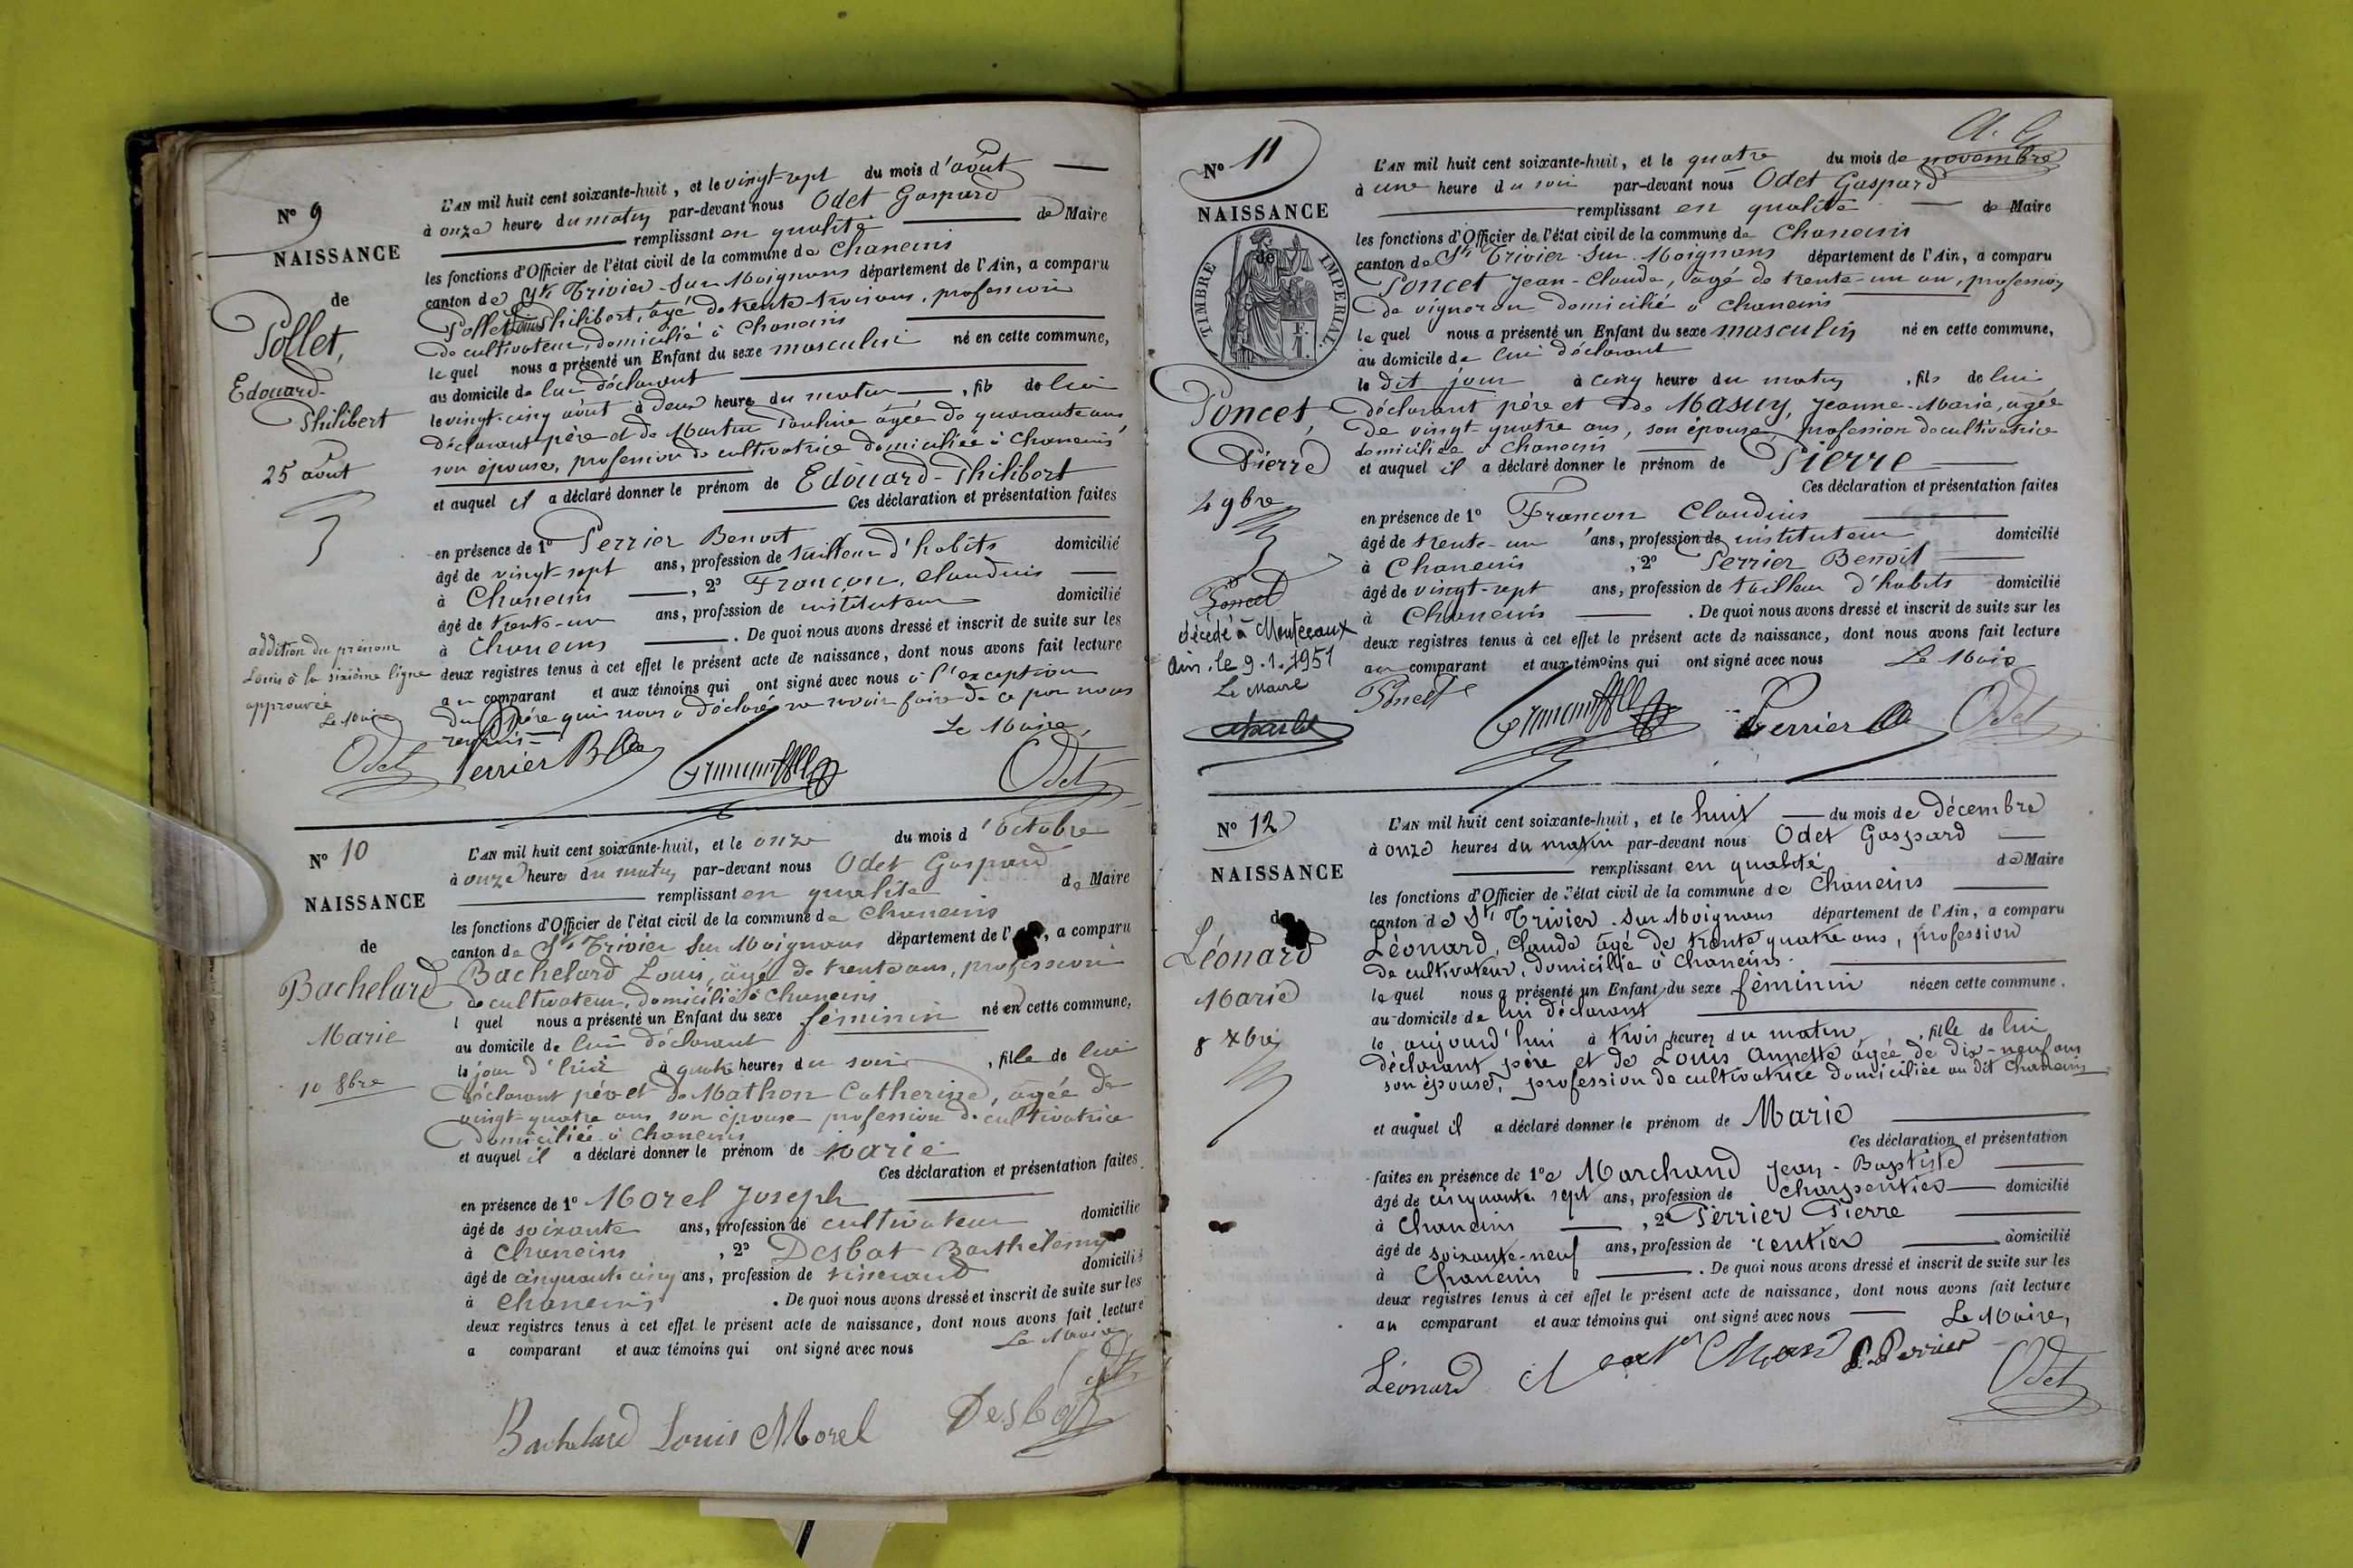 N° 9
NAISSANCE
de
Pollet,
Edouard-
Philibert
25 août
L'AN mil huit cent soixante-huit, et le vingt-sept du mois d'août
à onze heures du matin par-devant nous Odet Gaspard
remplissant en qualité de Maire
les fonctions d'Officier de l'état civil de la commune de Chaneins
canton de St Trivier-sur-Moignans département de l'Ain, a comparu
Pollet Louis Philibert, âgé de trente-trois ans, profession
de cultivateur, domicilié à Chaneins
lequel nous a présenté un Enfant du sexe masculin né en cette commune,
au domicile de lui déclarant
le vingt-cinq août à deux heures du matin, fils de lui
déclarant père et de Martin Pauline âgée de quarante ans,
son épouse, profession de cultivatrice domiciliée à Chaneins
et auquel il a déclaré donner le prénom de Edouard-Philibert
Ces déclaration et présentation faites
en présence de 1° Perrier Benoit
âgé de vingt-sept ans, profession de tailleur d'habits domicilié
à Chaneins, 2° Françon, Claudius
âgé de trente-un ans, profession de instituteur domicilié
à Chaneins. De quoi nous avons dressé et inscrit de suite sur les
deux registres tenus à cet effet le présent acte de naissance, dont nous avons fait lecture
au comparant et aux témoins qui ont signé avec nous à l'exception
du père qui nous a déclaré ne savoir faire de ce par nous
requis-
Le Maire,
addition du prénom
Louis à la sixième ligne
approuvée
Le Maire
Odet Perrier B Odet
N° 10
NAISSANCE
de
Bachelard
Marie
10 8bre
L'AN mil huit cent soixante-huit, et le onze du mois d'octobre
à onze heures du matin par-devant nous Odet Gaspard
remplissant en qualité de Maire
les fonctions d'Officier de l'état civil de la commune de Chaneins
canton de St Trivier sur Moignans département de l', a comparu
Bachelard Louis, âgé de trente ans, profession
de cultivateur, domicilié à Chaneins
l quel nous a présenté un Enfant du sexe féminin né en cette commune,
au domicile de lui déclarant
le jour d'hier à quatre heures du soir, fille de lui
déclarant père et de Mathon Catherine, âgée de
vingt-quatre ans, son épouse profession de cultivatrice
domiciliée à Chaneins
et auquel il a déclaré donner le prénom de Marie
Ces déclaration et présentation faites
en présence de 1° Morel Joseph
âgé de soixante ans, profession de cultivateur domicilié
à Chaneins, 2° Desbat Barthélemy
âgé de cinquante cinq ans, profession de tisserand domicilié
à Chaneins. De quoi nous avons dressé et inscrit de suite sur les
deux registres tenus à cet effet le présent acte de naissance, dont nous avons fait lecture
a comparant et aux témoins qui ont signé avec nous Le Maire,
Odet
Bachelard Louis Morel Desbat
N° 11
NAISSANCE
de
TIMBRE IMPÉRIAL
Poncet,
Pierre
4 9bre
Poncet
décédé à Montceaux
Ain. le 9.1.1951
Le Maire
L'AN mil huit cent soixante-huit, et le quatre du mois de novembre
à une heure du soir par-devant nous Odet Gaspard
remplissant en qualité de Maire
les fonctions d'Officier de l'état civil de la commune de Chaneins
canton de St Trivier-sur-Moignans département de l'Ain, a comparu
Poncet Jean-Claude, âgé de trente-un an, profession
de vigneron domicilié à Chaneins
lequel nous a présenté un Enfant du sexe masculin né en cette commune,
au domicile de lui déclarant
le dit jour à cinq heures du matin, fils de lui
déclarant père et de Masuy, Jeanne-Marie, âgée
de vingt-quatre ans, son épouse, profession de cultivatrice
domiciliée à Chaneins
et auquel il a déclaré donner le prénom de Pierre
Ces déclaration et présentation faites
en présence de 1° Françon Claudius
âgé de trente-un ans, profession de instituteur domicilié
à Chaneins, 2° Perrier Benoit
âgé de vingt-sept ans, profession de tailleur d'habits domicilié
à Chaneins. De quoi nous avons dressé et inscrit de suite sur les
deux registres tenus à cet effet le présent acte de naissance, dont nous avons fait lecture
au comparant et aux témoins qui ont signé avec nous Le Maire
Poncet Perrier Odet
N° 12
NAISSANCE
Léonard
Marie
8 Xbre
L'AN mil huit cent soixante-huit, et le huit du mois de décembre
à onze heures du matin par-devant nous Odet Gaspard
remplissant en qualité de Maire
les fonctions d'Officier de l'état civil de la commune de Chaneins
canton de St Trivier-sur-Moignans département de l'Ain, a comparu
Léonard, Claude âgé de trente quatre ans, profession
de cultivateur, domicilié à Chaneins.
lequel nous a présenté un Enfant du sexe féminin née en cette commune.
au domicile de lui déclarant
le aujourd'hui à trois heures du matin, fille de lui
déclarant père et de Louis Annette âgée de dix-neuf ans
son épouse, profession de cultivatrice domiciliée au dit Chaneins
et auquel il a déclaré donner le prénom de Marie
Ces déclaration et présentation
faites en présence de 1° Marchand Jean-Baptiste
âgé de cinquante sept ans, profession de charpentier domicilié
à Chaneins, 2° Perrier Pierre
âgé de soixante-neuf ans, profession de rentier domicilié
à Chaneins. De quoi nous avons dressé et inscrit de suite sur les
deux registres tenus à cet effet le présent acte de naissance, dont nous avons fait lecture
au comparant et aux témoins qui ont signé avec nous Le Maire,
Léonard P. Perrier Odet